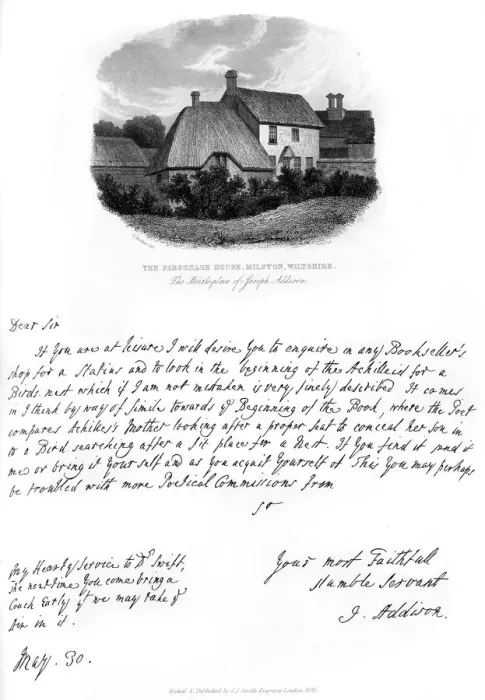 THE PARSONAGE HOUSE, MILSTON, WILTSHIRE.
The Birthplace of Joseph Addison.
Dear Sir
If You are at leisure I will desire You to enquire in any Bookseller's
shop for a Statius and to look in the beginning of the Achilleid for a
Birds-nest which if I am not mistaken is very finely described. It comes
in I think by way of Simile towards ye Beginning of the Book, where the Poet
compares Achilles's Mother looking after a proper Seat to conceal her Son in
to a Bird searching after a fit place for a Nest. If You find it send it
me or bring it Your self and as you acquit Yourself of This You may perhaps
be troubled with more Poetical Commissions from
Sr
My Hearty Service to Dr Swift,
The next time You come bring a
Coach Early yt we may take ye
Air in it.
Your most Faithfull
Humble Servant
J. Addison.
May. 30.
Etched & Published by C. J. Smith